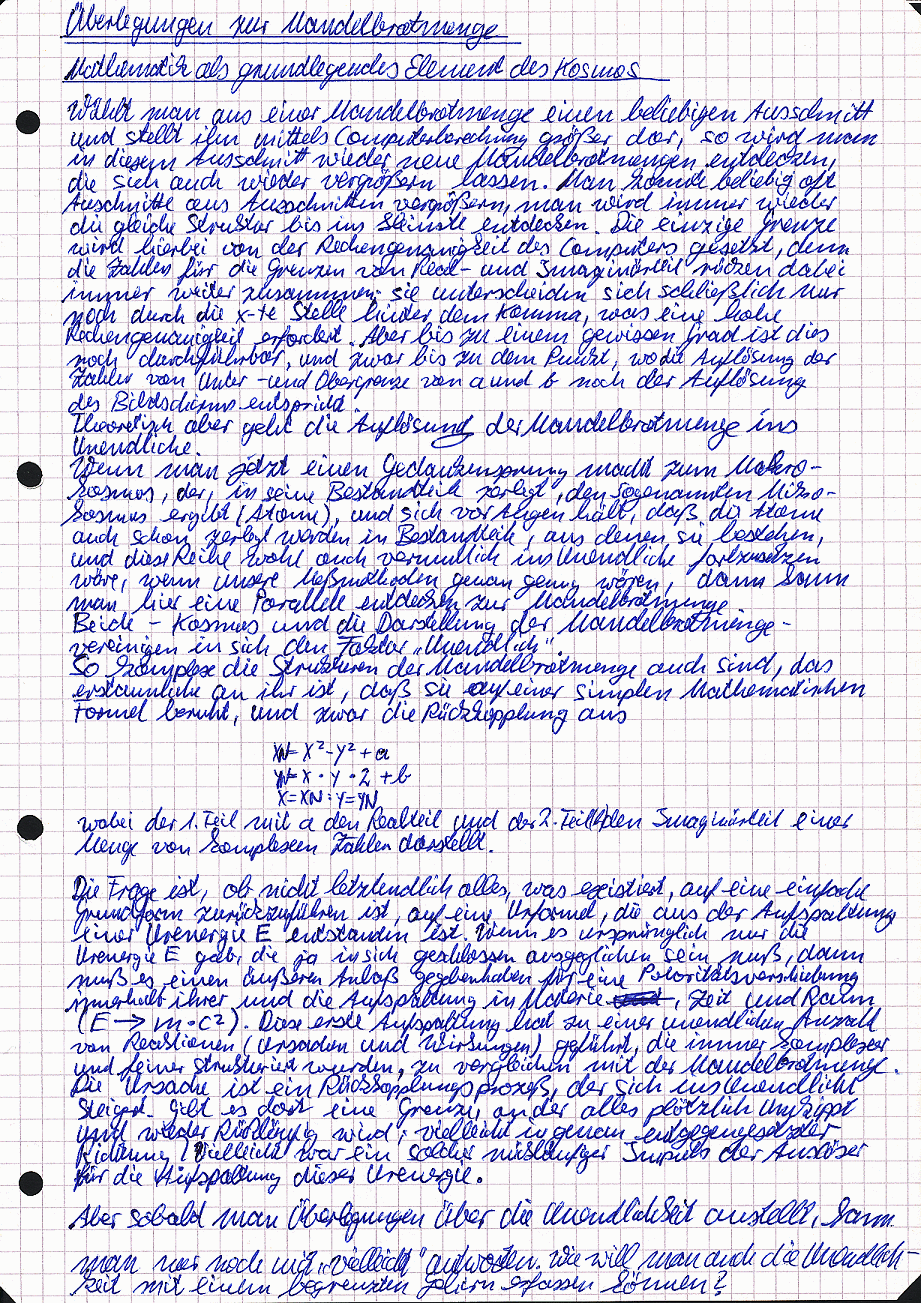 Überlegungen zur Mandelbrotmenge
Mathematik als grundlegendes Element des Kosmos
Wählt man aus einer Mandelbrotmenge einen beliebigen Ausschnitt
und stellt ihn mittels Computerberechnung größer dar, so wird man
in diesem Ausschnitt wieder neue Mandelbrotmengen entdecken,
die sich auch wieder vergrößern lassen. Man könnte beliebig oft
Auschnitte aus Ausschnitten vergrößern, man wird immer wieder
die gleiche Struktur bis ins Kleinste entdecken. Die einzige Grenze
wird hierbei von der Rechengenauigkeit des Computers gesetzt, denn
die Zahlen für die Grenzen von Real- und Imaginärteil rücken dabei
immer weiter zusammen: sie unterscheiden sich schließlich nur
noch durch die x-te Stelle hinter dem Komma, was eine hohe
Rechengenauigkeit erfordert. Aber bis zu einem gewissen Grad ist dies
noch durchführbar, und zwar bis zu dem Punkt, wo die Auflösung der
Zahlen von Unter- und Obergrenze von a und b noch der Auflösung
des Bildschirms entspricht.
Theoretisch aber geht die Auflösung der Mandelbrotmenge ins
Unendliche.
Wenn man jetzt einen Gedankensprung macht zum Makro-
kosmos, der, in seine Bestandteile zerlegt, den sogenannten Mikro-
kosmos ergibt (Atome), und sich vor Augen hält, daß die Atome
auch schon zerlegt werden in Bestandteile, aus denen sie bestehen,
und diese Reihe wohl auch vermutlich ins Unendliche fortzusetzen
wäre, wenn unsere Meßmethoden genau genug wären, dann kann
man hier eine Parallele entdecken zur Mandelbrotmenge
Beide - Kosmos und die Darstellung der Mandelbrotmenge -
vereinigen in sich den Faktor "Unendlich".
So komplex die Strukturen der Mandelbrotmenge auch sind, das
erstaunliche an ihr ist, daß sie auf einer simplen Mathematischen
Formel beruht, und zwar die Rückkopplung aus
XN=X²-Y²+a
YN=X·Y·2+b
X=XN:Y=YN
wobei der 1. Teil mit a den Realteil und der 2. Teil den Imaginärteil einer
Menge von komplexen Zahlen darstellt.
Die Frage ist, ob nicht letztendlich alles, was existiert, auf eine einfache
Grundform zurückzuführen ist, auf eine Urformel, die aus der Aufspaltung
einer Urenergie E entstanden ist. Wenn es ursprünglich nur die
Urenergie E gab, die ja in sich geschlossen ausgeglichen sein muß, dann
muß es einen äußeren Anlaß gegeben haben für eine Polaritätsverschiebung
innerhalb ihrer und die Aufspaltung in Materie, Zeit und Raum
(E → m·c²). Diese erste Aufspaltung hat zu einer unendlichen Anzahl
von Reaktionen (Ursachen und Wirkungen) geführt, die immer komplexer
und feiner strukturiert wurden, zu vergleichen mit der Mandelbrotmenge.
Die Ursache ist ein Rückkopplungsprozeß, der sich ins Unendliche
steigert. Gibt es dort eine Grenze, an der alles plötzlich umkippt
und wieder Rückläufig wird, vielleicht in genau entgegengesetzter
Richtung? Vielleicht war ein solcher rückläufiger Impuls der Auslöser
für die Aufspaltung dieser Urenergie.
Aber sobald man Überlegungen über die Unendlichkeit anstellt, kann
man nur noch mit "vielleicht" antworten. Wie will man auch die Unendlich-
keit mit einem begrenzten Gehirn erfassen können?